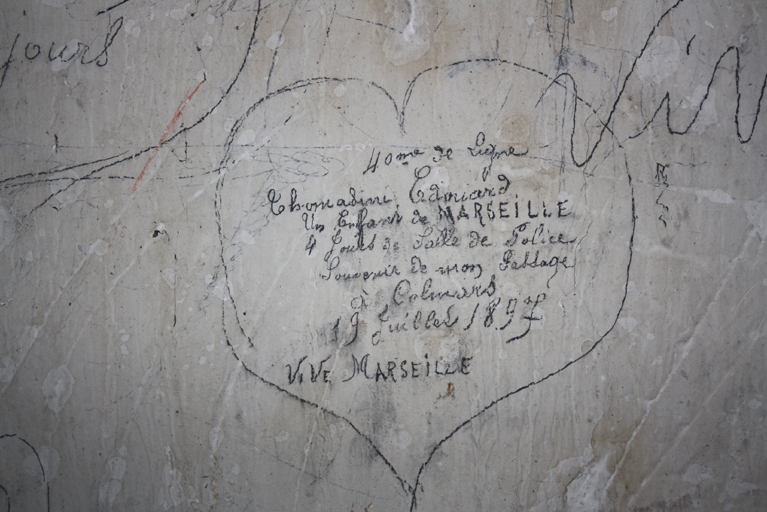 jours
Viv
40me de Ligne
Thomadini Edouard
Un Enfant de MARSEILLE
4 Jours de Salle de Police
Souvenir de mon Passage
à Colmars
19 Juillet 1897
ViVE MARSEiLLE